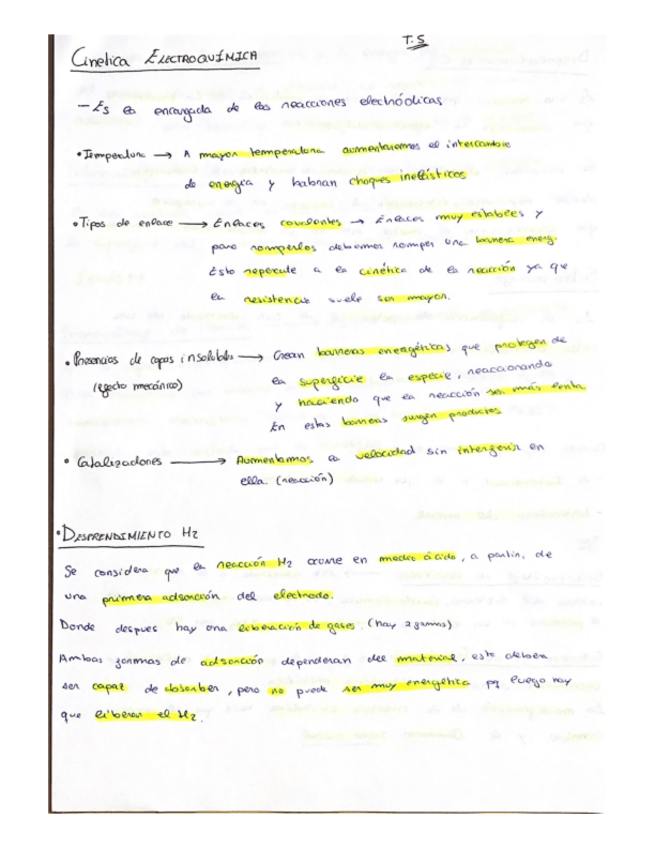 T.5
Cinetica ELECTROQUÍMICA
- Es la encargada de las reacciones electródicas
• Temperatura → A mayor temperatura aumentaremos el intercambio
de energía y habran choques inelásticos
• Tipos de enlace → Enlaces covalentes → Enlaces muy estables y
para romperlos debemos romper una barrera energ.
Esto repercute a la cinética de la reacción ya que
la resistencia suele ser mayor.
• Presencias de capas insolubles → Crean barreras energéticas que protegen de
(efecto mecánico) la superficie la especie, reaccionando
y haciendo que la reacción sea más lenta
En estas barreras surgen productos
• Catalizadores → Aumentamos la velocidad sin intergerir en
ella. (reacción)
• DESPRENDIMIENTO H2
Se considera que la reacción H2 ocurre en medio ácido, a partir, de
una primera adsorción del electrodo.
Donde despues hay una liberación de gases. (hay 2 formas)
Ambas formas de adsorción dependeran del material, este debera
ser capaz de absorber, pero no puede ser muy energética pq luego hay
que liberar el H2.